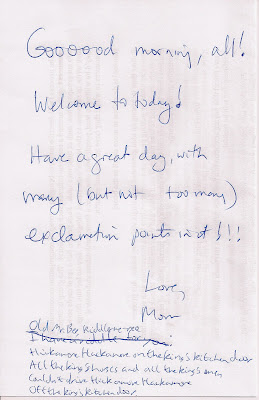 Goooood morning, all!
Welcome to today!
Have a great day, with
many (but not too many)
exclamation points in it!!!
Love,
Mom
Old Mr.
I have a little
Hickamore Hackamore on the King's kitchen door
All the King's horses and all the King's men
Couldn't drive Hickamore Hackamore
Off the King's kitchen door